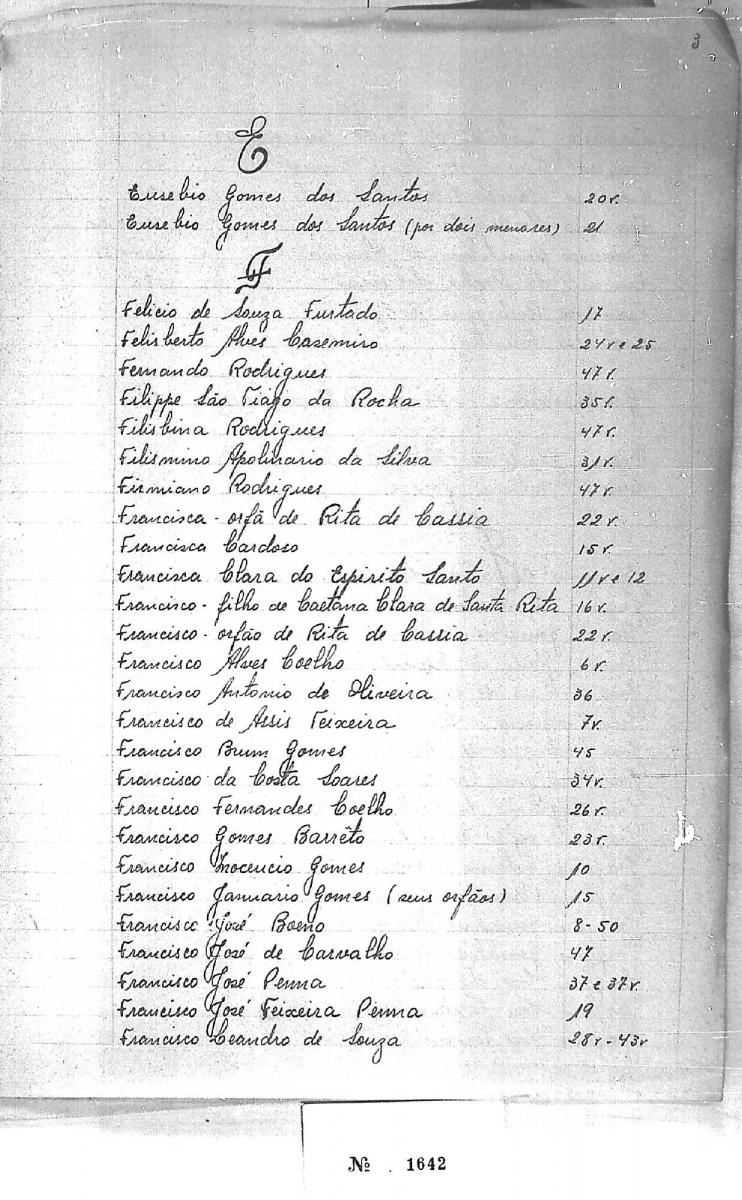 3
E
Eusebio Gomes dos Santos 20v.
Eusebio Gomes dos Santos (por dois menores) 21
F
Felicio de Souza Furtado 17
Felisberto Alves Casemiro 24v e 25
Fernando Rodrigues 47v.
Filippe São Tiago da Rocha 35v.
Filisbina Rodrigues 47v.
Filismino Apolinario da Silva 31v.
Firmiano Rodrigues 47v.
Francisca - orfã de Rita de Cassia 22v.
Francisca Cardoso 15v.
Francisca Clara do Espirito Santo 11v e 12
Francisco - filho de Caetana Clara de Santa Rita 16v.
Francisco - orfão de Rita de Cassia 22v.
Francisco Alves Coelho 6v.
Francisco Antonio de Oliveira 36
Francisco de Assis Teixeira 7v.
Francisco Brum Gomes 45
Francisco da Costa Soares 34v.
Francisco Fernandes Coelho 26v.
Francisco Gomes Barrêto 23v.
Francisco Inocencio Gomes 10
Francisco Januario Gomes (seus orfãos) 15
Francisco José Boeno 8-50
Francisco José de Carvalho 47
Francisco José Penna 37 e 37v.
Francisco José Teixeira Penna 19
Francisco Leandro de Souza 28v-43v
№ 1642